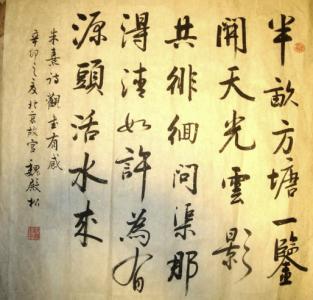 半畝方塘一鑒
開天光雲影
共徘徊問渠那
得清如許為有
源頭活水來
朱熹詩觀書有感
辛卯之夏北京故宮魏殿松